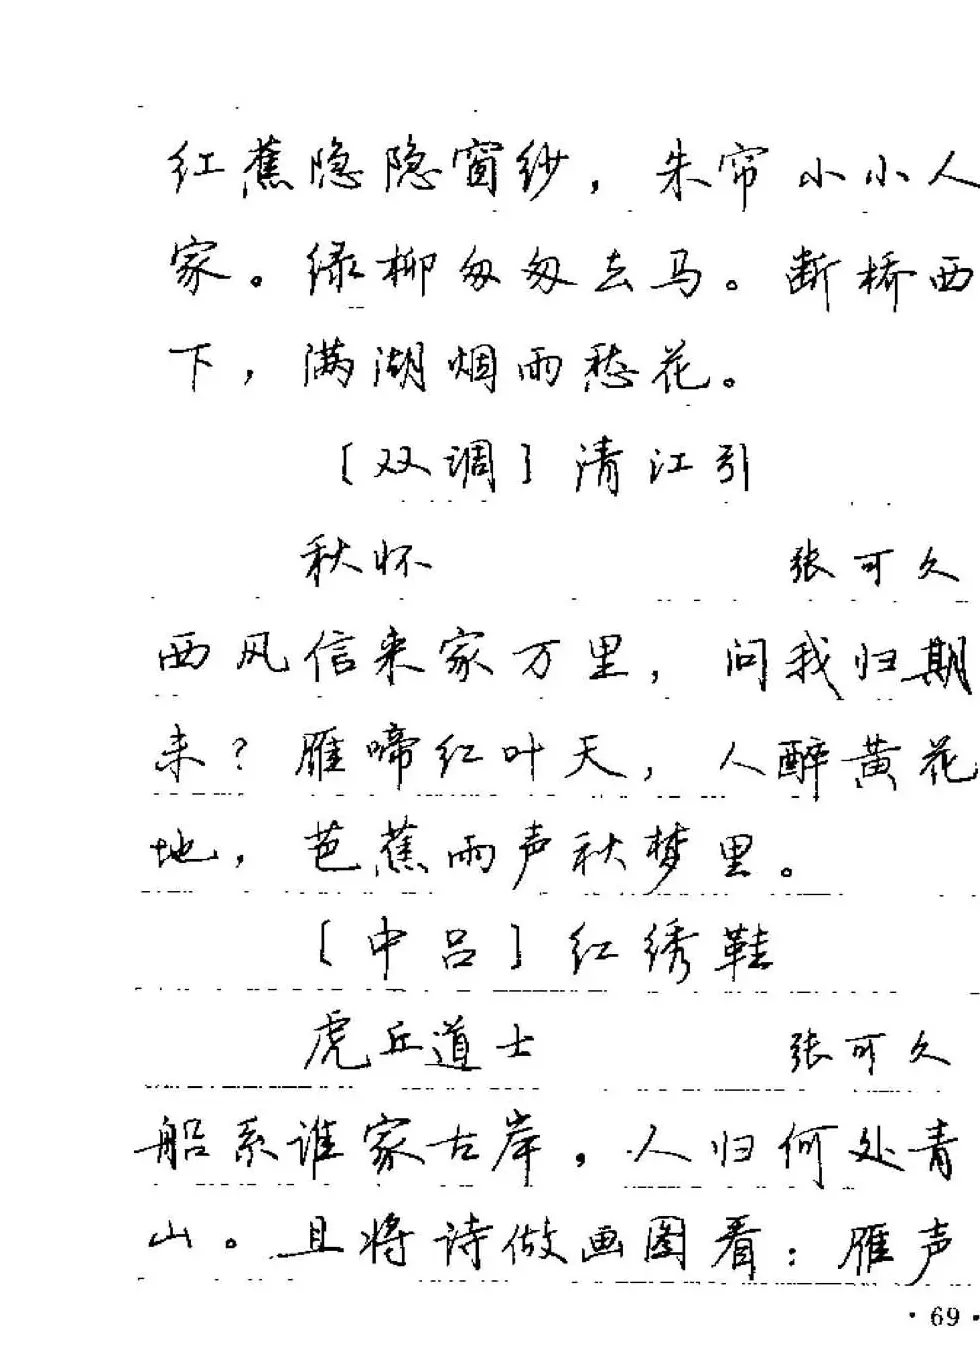 红蕉隐隐窗纱，朱帘小小人
家。绿柳匆匆去马。断桥西
下，满湖烟雨愁花。
［双调］清江引
秋怀 张可久
西风信来家万里，问我归期
未？雁啼红叶天，人醉黄花
地，芭蕉雨声秋梦里。
［中吕］红绣鞋
虎丘道士 张可久
船系谁家古岸，人归何处青
山。且将诗做画图看：雁声
·69·